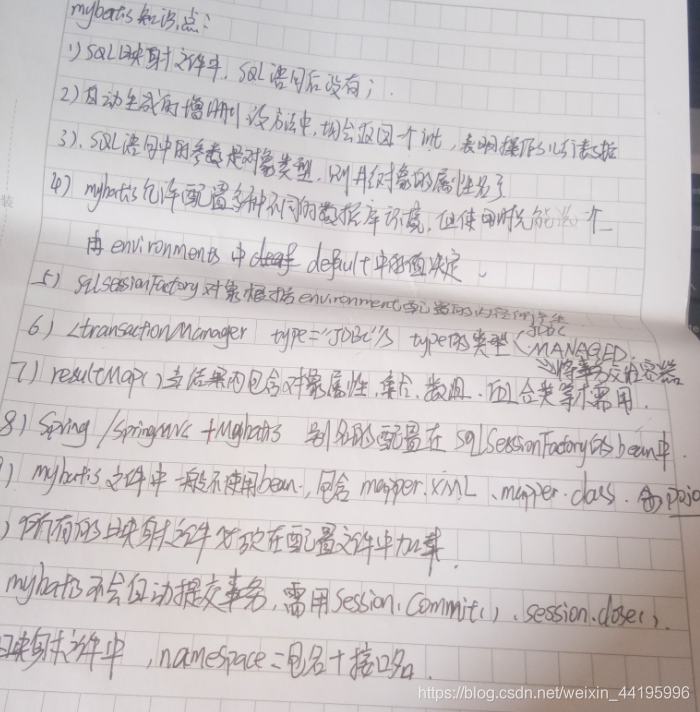 mybatis知识点:
1) SQL映射文件中, SQL语句后没有;
2) 自动生成的增删改方法中, 均会返回一个int, 表明操作了几行数据
3). SQL语句中的参数是对象类型, 则#{对象的属性名}
4) mybatis允许配置多种不同的数据库环境, 但使用时只能选一个
由environments 中 default中的值决定.
5) sqlsessionFactory对象根据environment配置的内容
6) <transactionManager type="JDBC"/> type的类型<JDBC
MANAGED.
将事务交给容器
7) resultMap()当结果内包含对象属性, 集合, 数组, 组合类等才需用.
8) Spring/SpringMVC +Mybatis 别名的配置在sqlSessionFactory的bean中.
) mybatis文件中一般不使用bean, 包含mapper.XML、mapper.class. pojo
) 所有的映射文件必须在配置文件中加载.
mybatis不会自动提交事务, 需用session.commit(). session.close().
映射文件中, namespace=包名+接口名.
https://blog.csdn.net/weixin_44195996